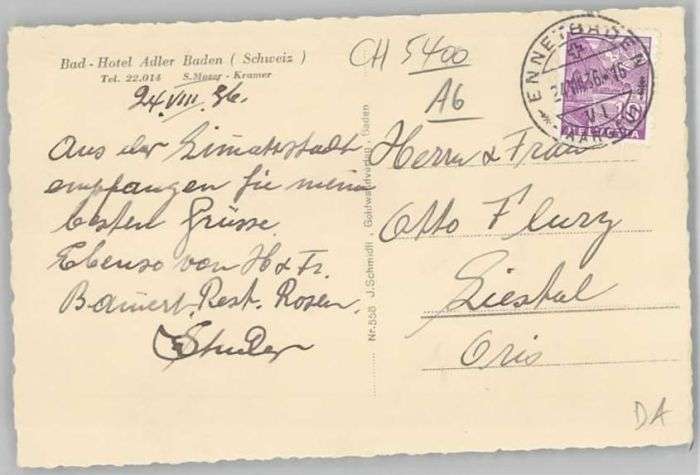 Bad - Hotel Adler Baden ( Schweiz )
Tel. 22.014 S. Moser - Kramer
24. VIII. 36.
Aus der Limattstadt
empfangen Sie meine
besten Grüsse.
Ebenso von H & Fr.
Baumert. Rest. Rosen.
Studer
Nr. 558 J. Schmidli, Goldwandverlag, Baden
CH 5400
A6
ENNETBADEN
24.VIII.36-16
(AARGAU)
HELVETIA
Herrn & Frau
Otto Flury
Liestal
Oris
DA